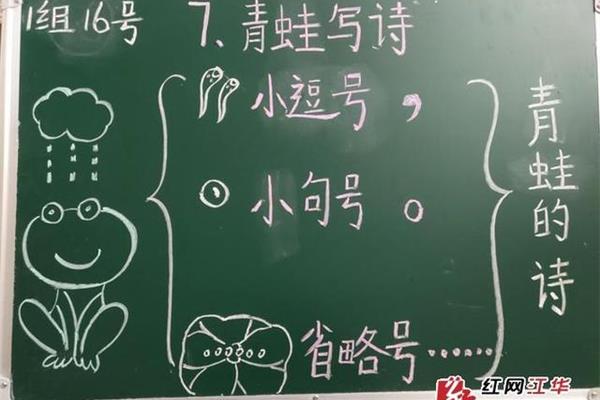 1组16号
7、青蛙写诗
小逗号，
小句号。
省略号……
青蛙的诗
红网江华